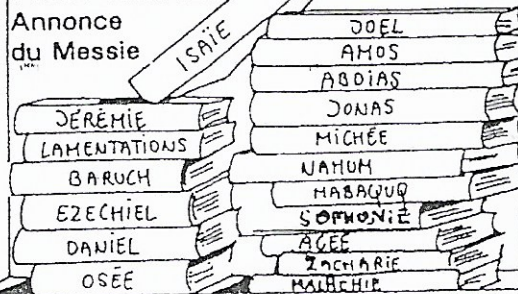 Annonce
du Messie
ISAÏE
JÉRÉMIE
LAMENTATIONS
BARUCH
EZECHIEL
DANIEL
OSÉE
JOEL
AMOS
ABDIAS
JONAS
MICHÉE
NAHUM
HABAQUQ
SOPHONIE
AGÉE
ZACHARIE
MALACHIE